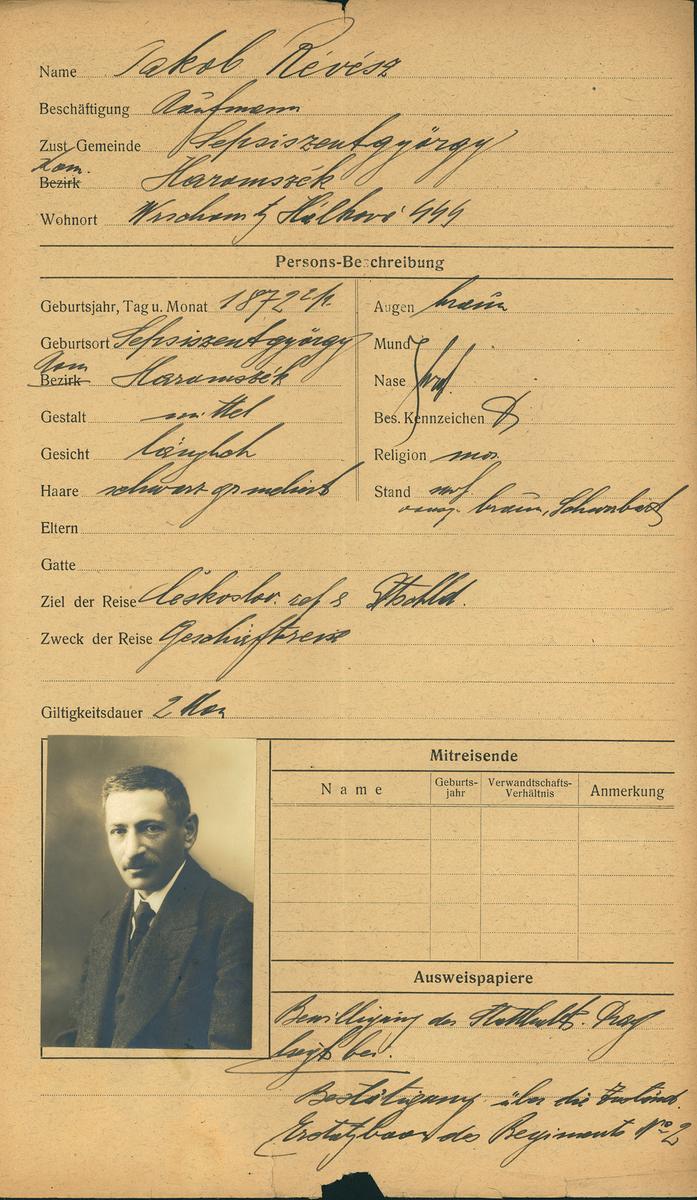 Name Jakob Révész
Beschäftigung Kaufmann
Zust. Gemeinde Sepsiszentgyörgy
Kom.
Bezirk Haromszék
Wohnort Wrschowitz Hálkova 444
Persons-Beschreibung
Geburtsjahr, Tag u. Monat 1872
Geburtsort Sepsiszentgyörgy
Kom
Bezirk Haromszék
Gestalt mittel
Gesicht länglich
Haare schwarz gr meliert
Augen braun
Mund
Nase prop.
Bes. Kennzeichen
Religion mos.
Stand
braun, Schnurbart
Eltern
Gatte
Ziel der Reise Českoslov. rep. & Dtschld.
Zweck der Reise Geschäftsreise
Giltigkeitsdauer 2 Mon
Mitreisende
Name Geburts-jahr Verwandtschafts-Verhältnis Anmerkung
Ausweispapiere
Bewilligung der Statthalt. Prag
liegt bei.
Bestätigung über die Zuständ.
Ersatzbaon des Regiments No 2